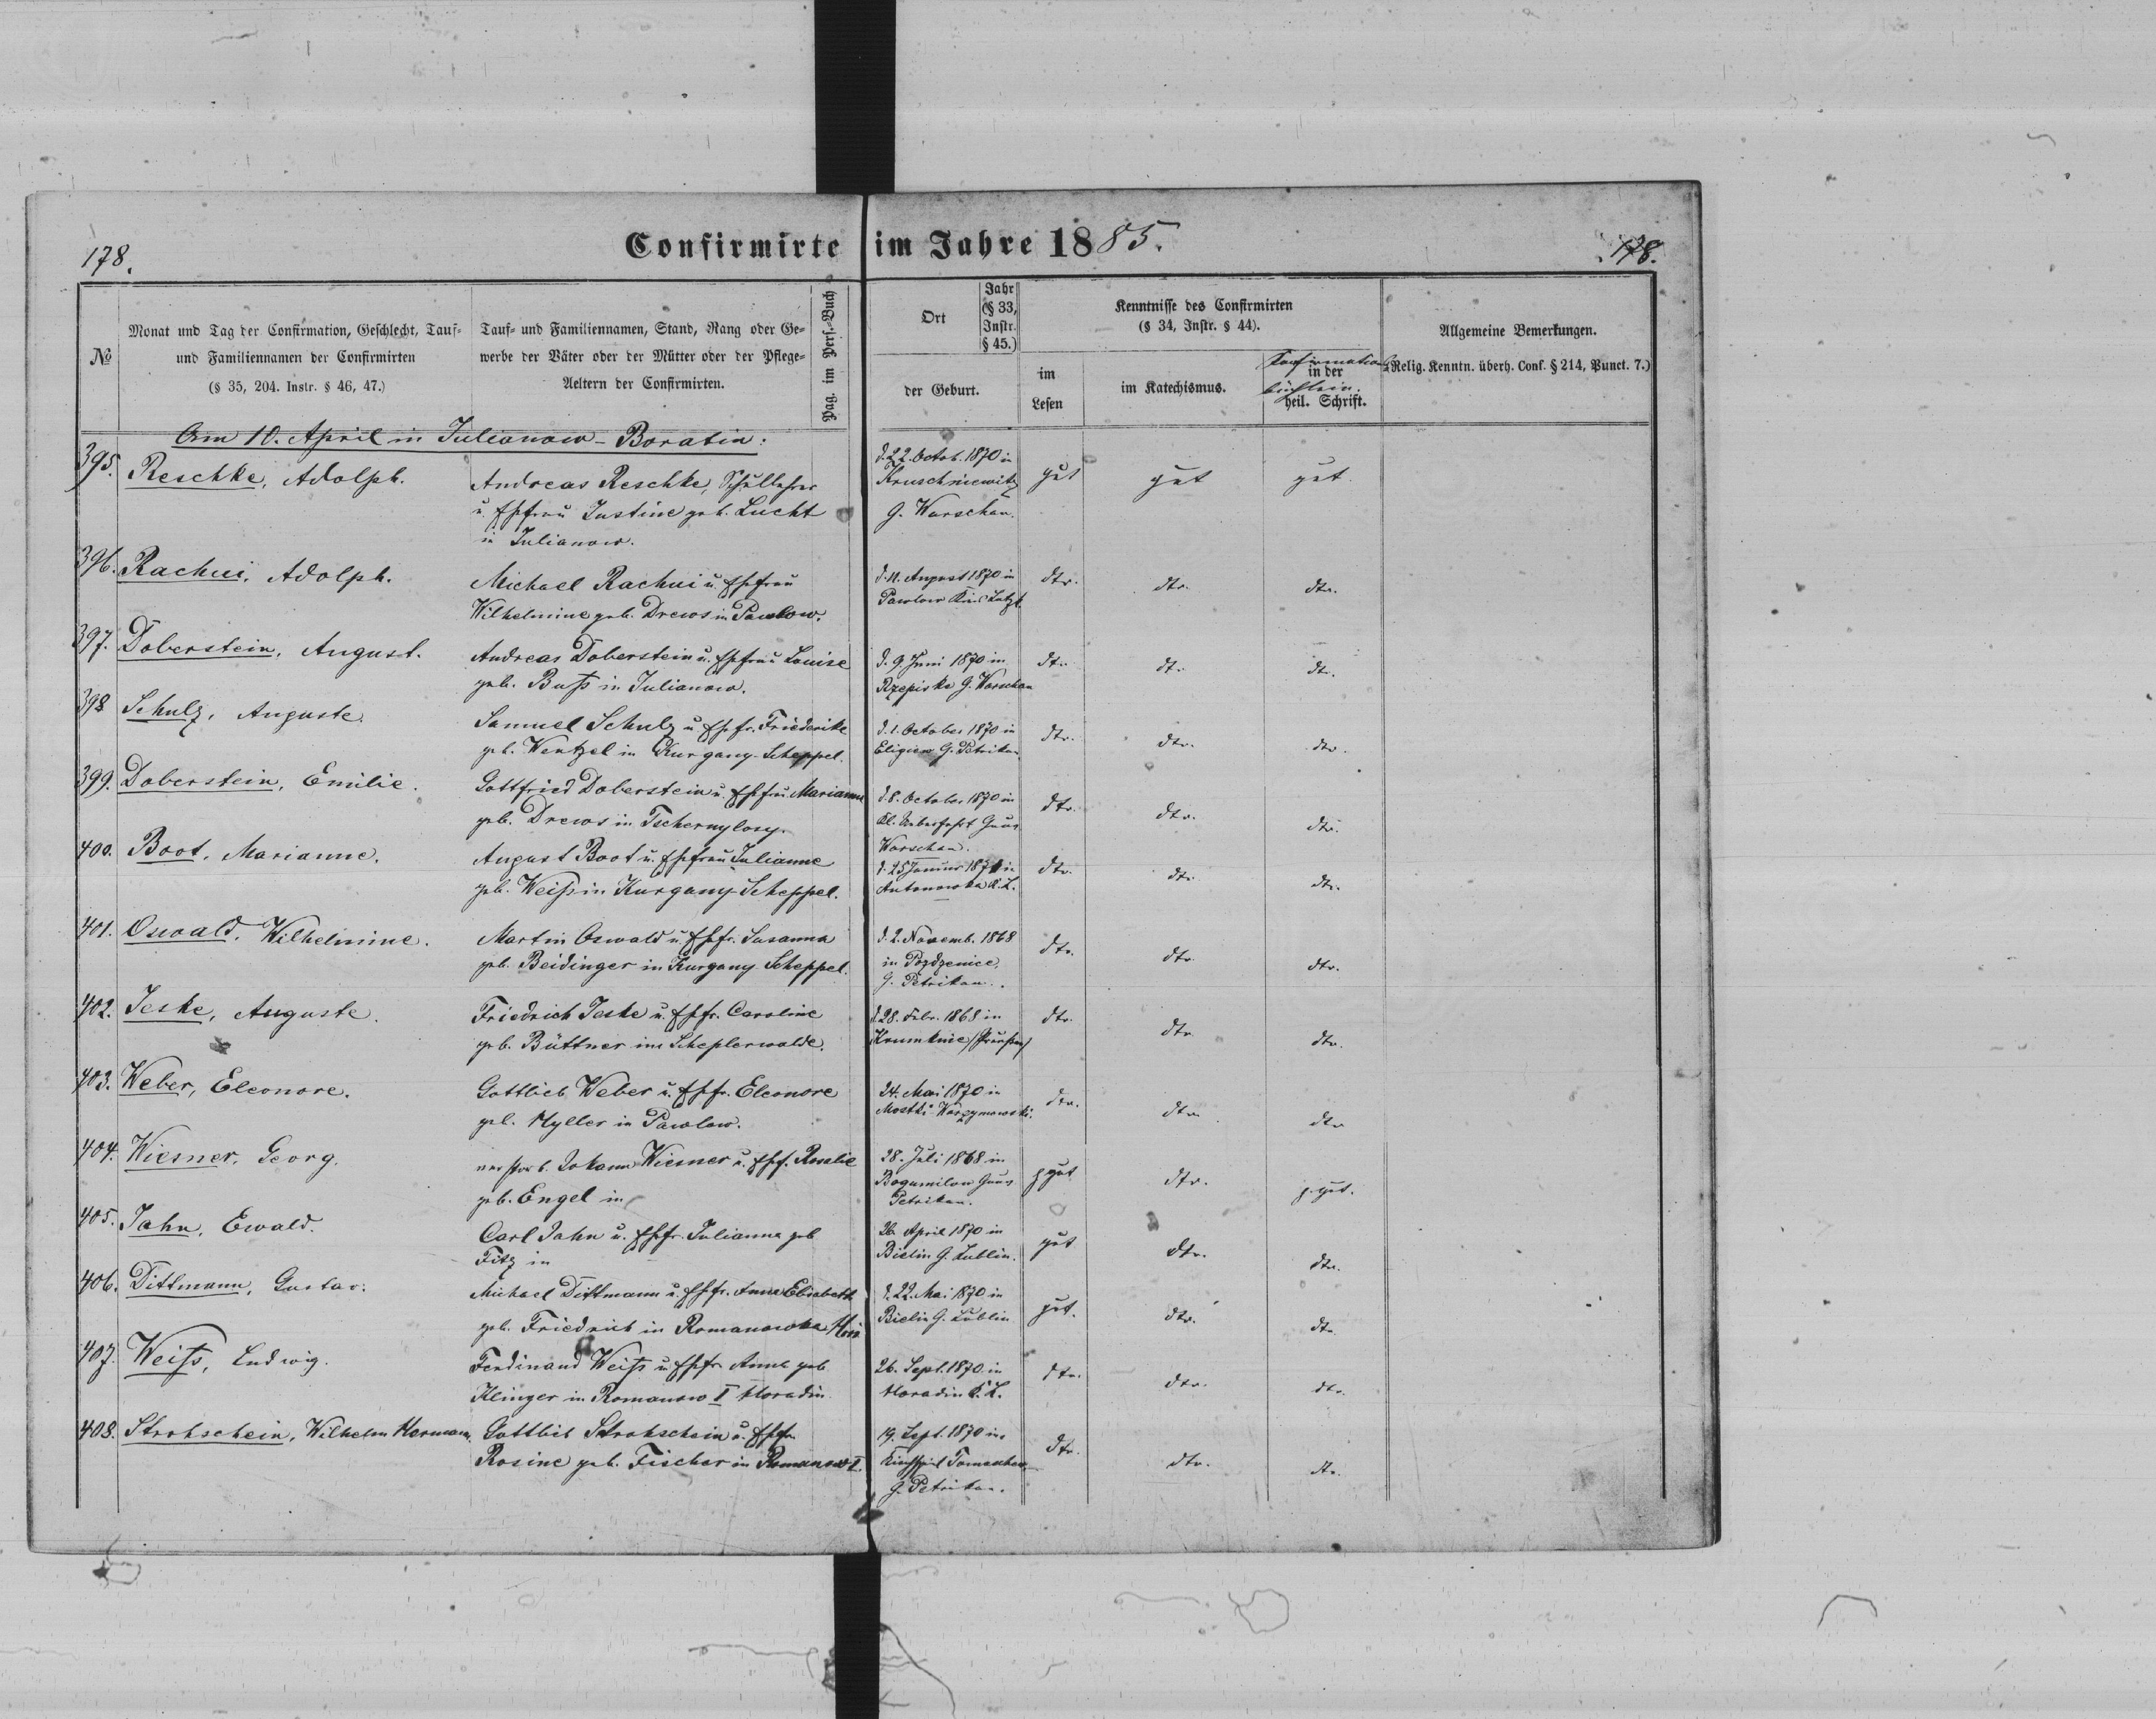 178.
Confirmirte im Jahre 1885.
178.
№
Monat und Tag der Confirmation, Geschlecht, Tauf-
und Familiennamen der Confirmirten
(§ 35, 204. Instr. § 46, 47.)
Tauf- und Familiennamen, Stand, Rang oder Ge-
werbe der Väter oder der Mütter oder der Pflege-
Aeltern der Confirmirten.
Pag. im Pers.-Buch
Ort
Jahr
(§ 33,
Instr.
§ 45.)
der Geburt.
Kenntnisse des Confirmirten
(§ 34, Instr. § 44).
im
Lesen
im Katechismus.
Confirmations
in der
büchlein.
heil. Schrift.
Allgemeine Bemerkungen.
(Relig. Kenntn. überh. Conf. § 214, Punct. 7.)
Am 10. April in Julianow-Boratin:
395. Reschke, Adolph.
Andreas Reschke, Schullehrer
u. Ehefrau Justine geb. Lucht
in Julianow.
d. 22. Octob. 1870 in
Kruschniewitz
G. Warschau.
gut
gut
gut.
396. Rachui, Adolph.
Michael Rachui u. Ehefrau
Wilhelmine geb. Drews in Pawlow.
d. 11. August 1870 in
Pawlow Kirchs. Lutzk.
dto.
dto.
dto.
397. Doberstein, August.
Andreas Doberstein u. Ehefrau Louise
geb. Buss in Julianow.
d. 9. Juni 1870 in
Rzepiske G. Warschau
dto.
dto.
dto.
398 Schulz, Auguste.
Samuel Schulz u. Ehefr. Friederike
geb. Wentzel in Kurgany-Scheppel.
d. 1. October 1870 in
Eligiow G. Petrikau.
dto.
dto.
dto.
399. Doberstein, Emilie.
Gottfried Doberstein u. Ehefrau Marianne
geb. Drews in Tschernylosy.
d. 8. October 1870 in
Kl. Ueberfahrt Guv.
Warschau.
dto.
dto.
dto.
400. Boot, Marianne.
August Boot u. Ehefrau Julianne
geb. Weiss in Kurgany-Scheppel.
d. 25 Januar 1871 in
Antonowka K. L.
dto.
dto.
dto.
401. Oswald, Wilhelmine.
Martin Oswald u. Ehefr. Susanna
geb. Beidinger in Kurgany Scheppel.
d. 2. Novemb. 1868
in Pozdzenice,
G. Petrikau.
dto.
dto.
dto.
402. Jeske, Auguste.
Friedrich Jeske u. Ehefr. Caroline
geb. Büttner in Scheplerwalde.
d. 28. Febr. 1868 in
Krumknie (Preussen)
dto.
dto.
dto.
403. Weber, Eleonore.
Gottlieb Weber u. Ehefr. Eleonore
geb. Hyller in Pawlow.
24. Mai 1870 in
Mostki-Warzymowski.
dto.
dto.
dto.
404. Wiesner, Georg.
verstorb. Johann Wiesner u. Ehef. Rosalie
geb. Engel in
28. Juli 1868 in
Bogumilow Guv.
Petrikau.
z. gut.
dto.
z. gut.
405. Jahn, Ewald.
Carl Jahn u. Ehefr. Julianna geb
Fitz in
26. April 1870 in
Bielin G. Lublin.
gut
dto.
dto.
406. Dittmann, Gustav.
Michael Dittmann u. Ehefr. Anna Elisabeth
geb. Friedrich in Romanowka
d. 22. Mai 1870 in
Bielin G. Lublin
gut.
dto.
dto.
407. Weiss, Ludwig.
Ferdinand Weiss u. Ehefr. Anna geb
Klinger in Romanow I Horadin.
26. Sept. 1870 in
Horadin K. L.
dto.
dto.
dto.
408. Strohschein, Wilhelm Hermann.
Gottlieb Strohschein u. Ehefr.
Rosine geb. Fischer in Romanow I.
19. Sept. 1870 in
Kirchspiel Tomaschow
G. Petrikau.
dto.
dto.
dto.